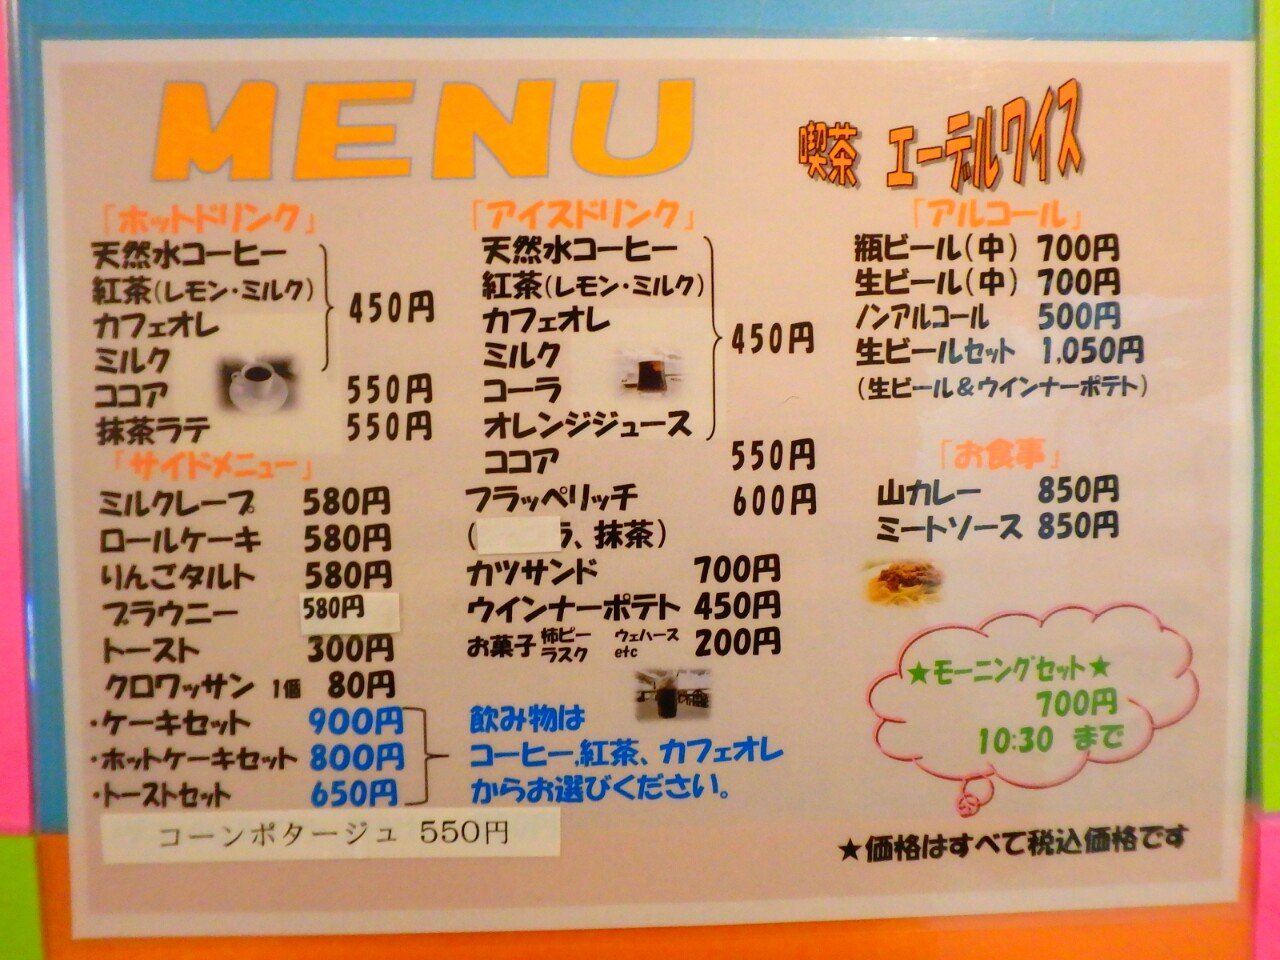 MENU
喫茶 エーデルワイス
「ホットドリンク」
天然水コーヒー
紅茶(レモン・ミルク)
カフェオレ
ミルク
450円
ココア 550円
抹茶ラテ 550円
「サイドメニュー」
ミルクレープ 580円
ロールケーキ 580円
りんごタルト 580円
ブラウニー 580円
トースト 300円
クロワッサン 1個 80円
・ケーキセット 900円
・ホットケーキセット 800円
・トーストセット 650円
コーンポタージュ 550円
「アイスドリンク」
天然水コーヒー
紅茶(レモン・ミルク)
カフェオレ
ミルク
コーラ
オレンジジュース
450円
ココア 550円
フラッペリッチ 600円
(ラ、抹茶)
カツサンド 700円
ウインナーポテト 450円
お菓子 柿ピー ウェハース 200円
ラスク etc
飲み物は
コーヒー,紅茶、カフェオレ
からお選びください。
「アルコール」
瓶ビール(中) 700円
生ビール(中) 700円
ノンアルコール 500円
生ビールセット 1,050円
(生ビール&ウインナーポテト)
「お食事」
山カレー 850円
ミートソース 850円
★モーニングセット★
700円
10:30 まで
★価格はすべて税込価格です